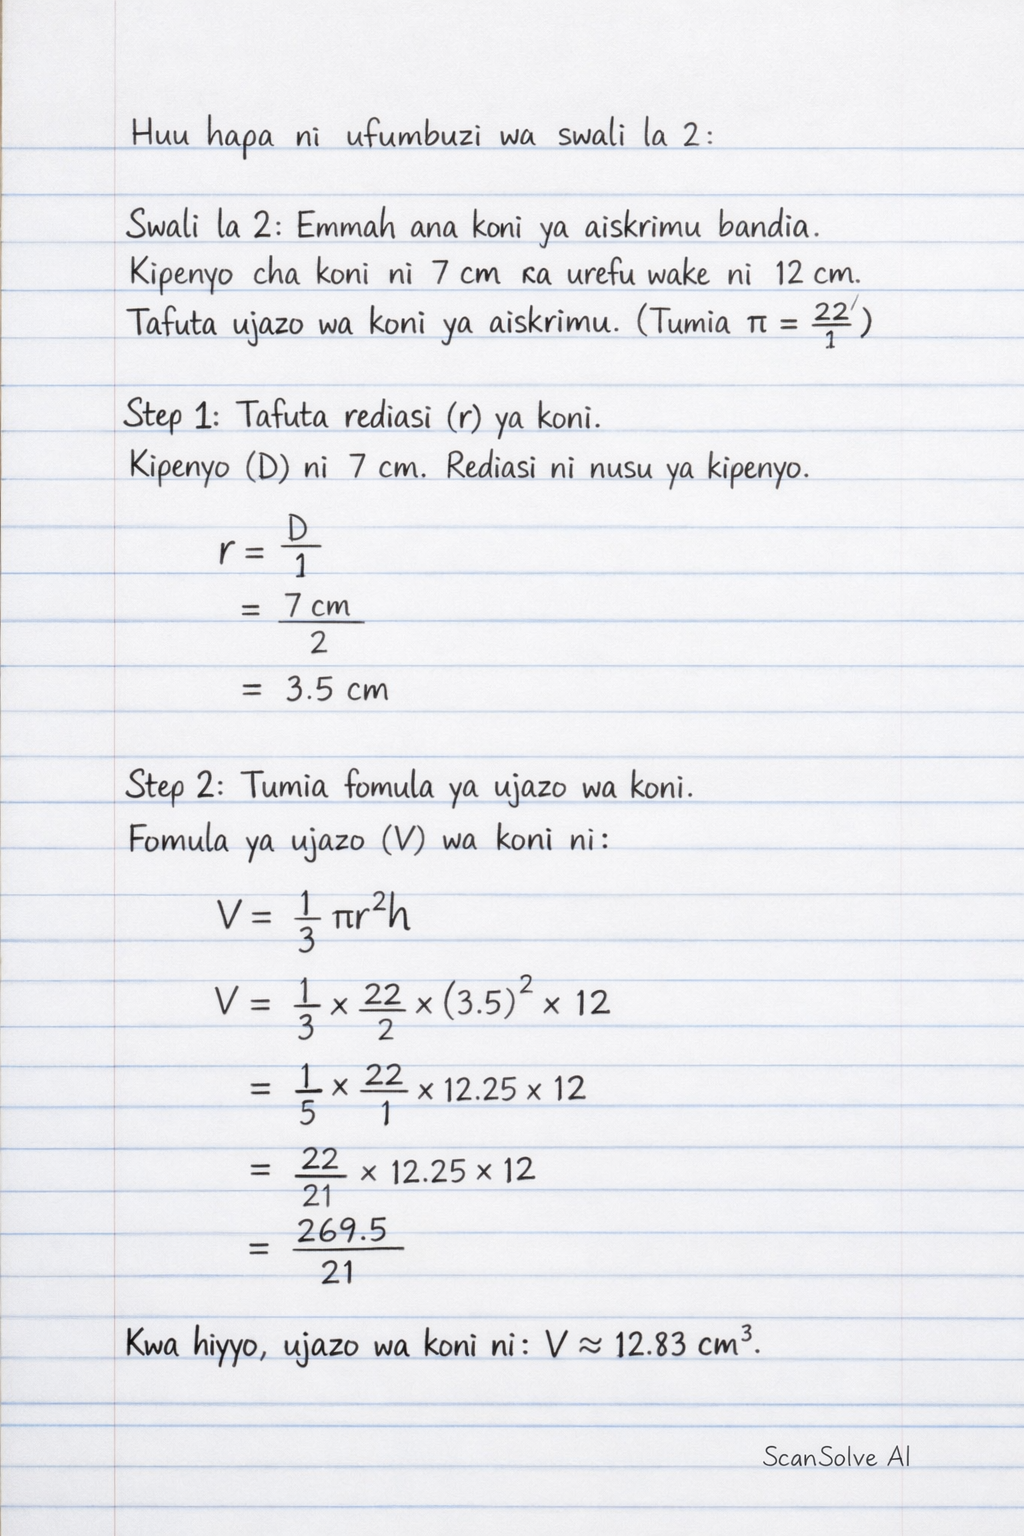 Huu hapa ni ufumbuzi wa swali la 2:
Swali la 2: Emmah ana koni ya aiskrimu bandia.
Kipenyo cha koni ni 7 cm ĸa urefu wake ni 12 cm.
Tafuta ujazo wa koni ya aiskrimu. (Tumia π = 22/1)
Step 1: Tafuta rediasi (r) ya koni.
Kipenyo (D) ni 7 cm. Rediasi ni nusu ya kipenyo.
r = D/1
= 7 cm/2
= 3.5 cm
Step 2: Tumia fomula ya ujazo wa koni.
Fomula ya ujazo (V) wa koni ni:
V = 1/3 πr²h
V = 1/3 × 22/2 × (3.5)² × 12
= 1/5 × 22/1 × 12.25 × 12
= 22/21 × 12.25 × 12
= 269.5/21
Kwa hiyyo, ujazo wa koni ni: V ≈ 12.83 cm³.
ScanSolve AI